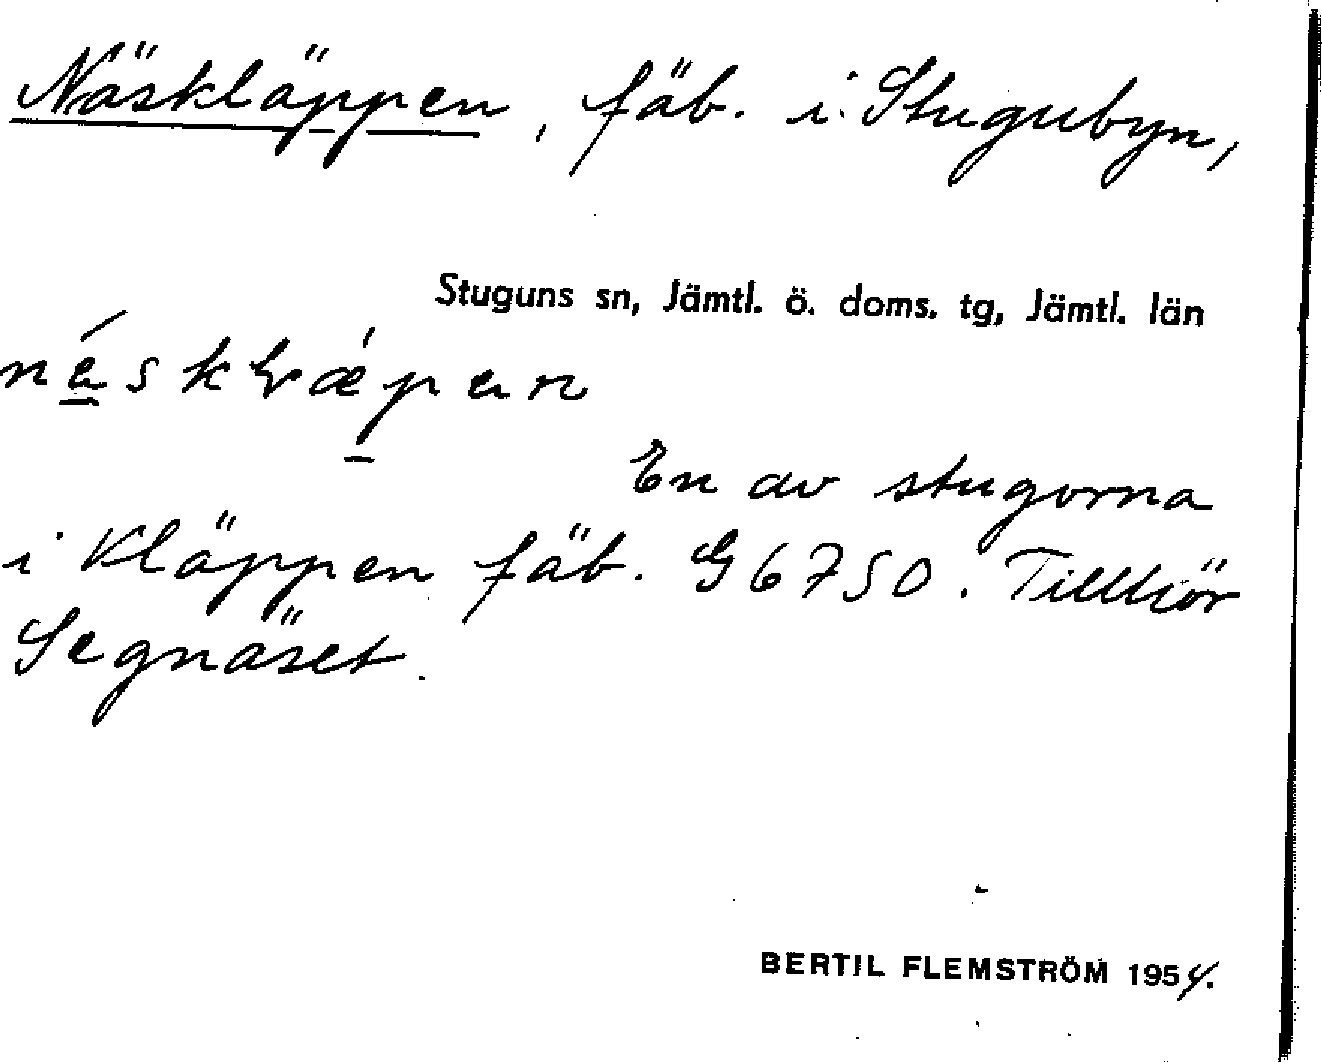 Näskläppen, fäb. i Stugubyn,
Stuguns sn, Jämtl. ö. doms. tg, Jämtl. län
En av stugorna
i Kläppen fäb. G 6750. Tillhör
Segnäset.
BERTIL FLEMSTRÖM 1954.